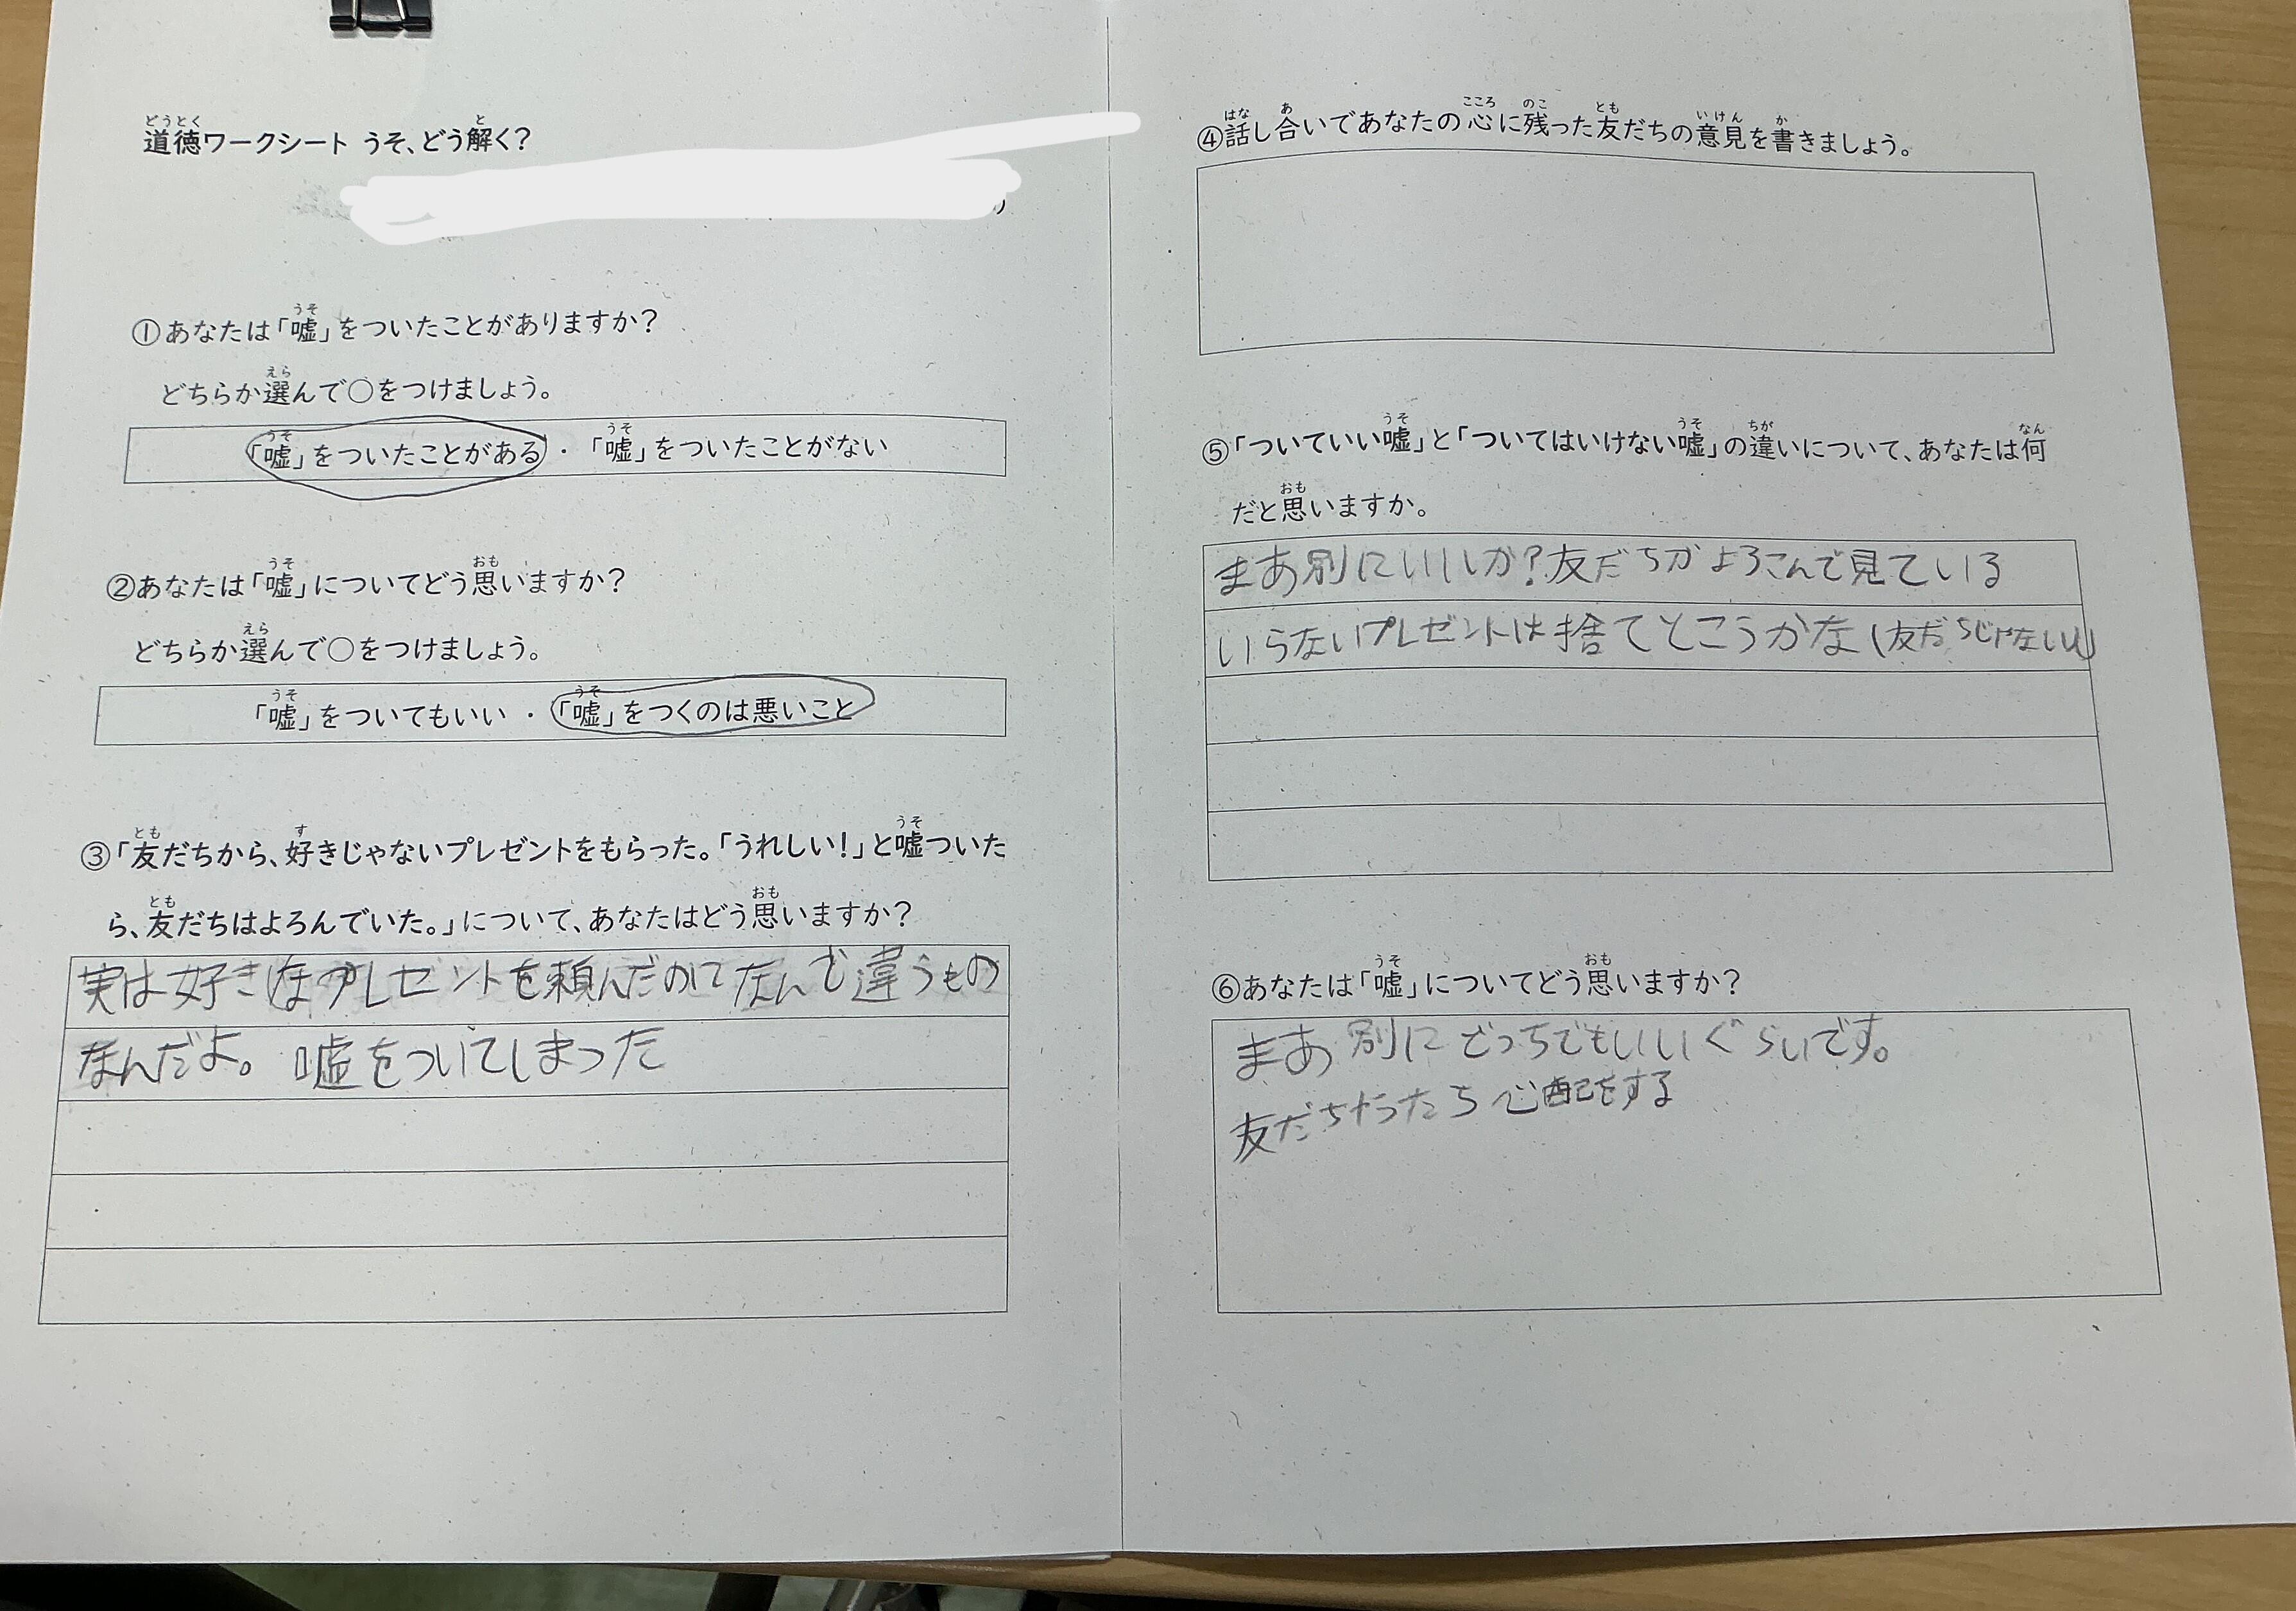 道徳ワークシート うそ、どう解く?
①あなたは「嘘」をついたことがありますか?
どちらか選んで○をつけましょう。
「嘘」をついたことがある・「嘘」をついたことがない
②あなたは「嘘」についてどう思いますか?
どちらか選んで○をつけましょう。
「嘘」をついてもいい・「嘘」をつくのは悪いこと
③「友だちから、好きじゃないプレゼントをもらった。「うれしい!」と嘘ついた
ら、友だちはよろんでいた。」について、あなたはどう思いますか?
実は好きなプレゼントを頼んだのになんで違うもの
なんだよ。嘘をついてしまった
④話し合いであなたの心に残った友だちの意見を書きましょう。
⑤「ついていい嘘」と「ついてはいけない嘘」の違いについて、あなたは何
だと思いますか。
まあ別にいいか?友だちがよろこんで見ている
いらないプレゼントは捨てとこうかな(友だちじゃない
⑥あなたは「嘘」についてどう思いますか?
まあ別にどっちでもいいぐらいです。
友だちだったら心配をする